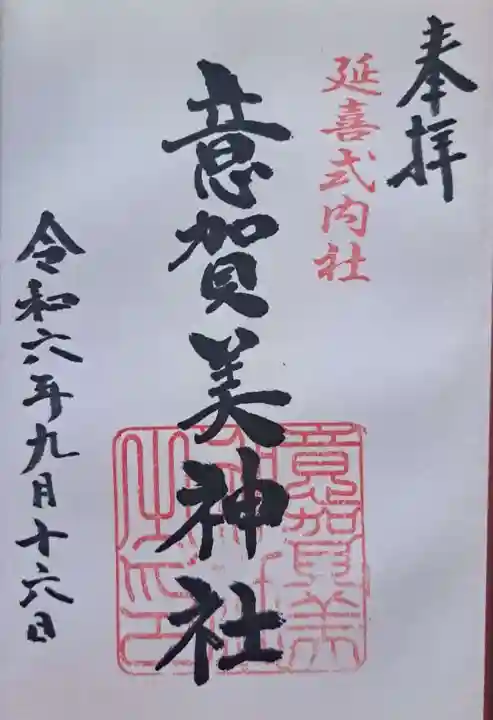 奉拝
延喜式内社
意賀美神社
意賀美
神社
之印
令和六年九月十六日